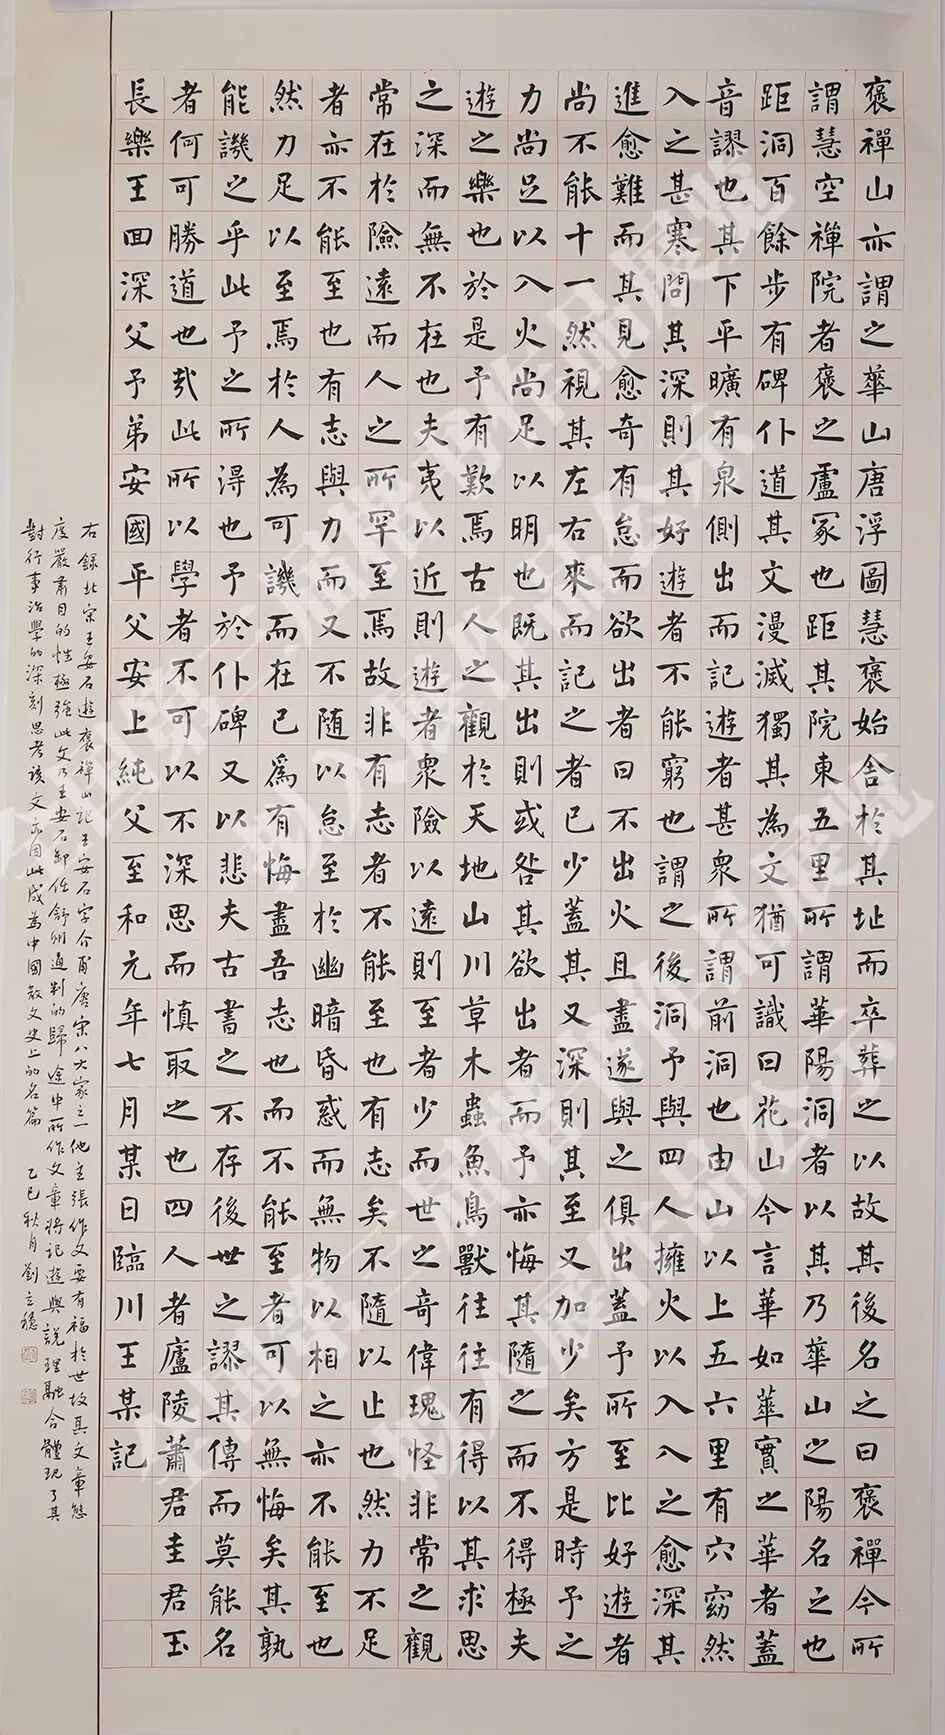 褒禪山亦謂之華山唐浮圖慧褒始舍於其址而卒葬之以故其後名之曰褒禪今所
謂慧空禪院者褒之廬冢也距其院東五里所謂華陽洞者以其乃華山之陽名之也
距洞百餘步有碑仆道其文漫滅獨其為文猶可識曰花山今言華如華實之華者蓋
音謬也其下平曠有泉側出而記遊者甚衆所謂前洞也由山以上五六里有穴窈然
入之甚寒問其深則其好遊者不能窮也謂之後洞予與四人擁火以入入之愈深其
進愈難而其見愈奇有怠而欲出者曰不出火且盡遂與之俱出蓋予所至比好遊者
尚不能十一然視其左右來而記之者已少蓋其又深則其至又加少矣方是時予之
力尚足以入火尚足以明也既其出則或咎其欲出者而予亦悔其隨之而不得極夫
遊之樂也於是予有歎焉古人之觀於天地山川草木蟲魚鳥獸往往有得以其求思
之深而無不在也夫夷以近則遊者衆險以遠則至者少而世之奇偉瑰怪非常之觀
常在於險遠而人之所罕至焉故非有志者不能至也有志矣不隨以止也然力不足
者亦不能至也有志與力而又不随以怠至於幽暗昏惑而無物以相之亦不能至也
然力足以至焉於人為可譏而在己爲有悔盡吾志也而不能至者可以無悔矣其孰
能譏之乎此予之所得也予於仆碑又以悲夫古書之不存後世之謬其傳而莫能名
者何可勝道也哉此所以學者不可以不深思而慎取之也四人者廬陵蕭君圭君玉
長樂王回深父予弟安國平父安上純父至和元年七月某日臨川王某記
右錄北宋王安石遊褒禪山記王安石字介甫唐宋八大家之一他主張作文要有補於世故其文章態
度嚴肅目的性極強此文乃王安石卸任舒州通判的歸途中所作文章將記遊與說理融合體現了其
對行事治學的深刻思考該文亦因此成為中國散文史上的名篇 乙巳秋月劉立穩